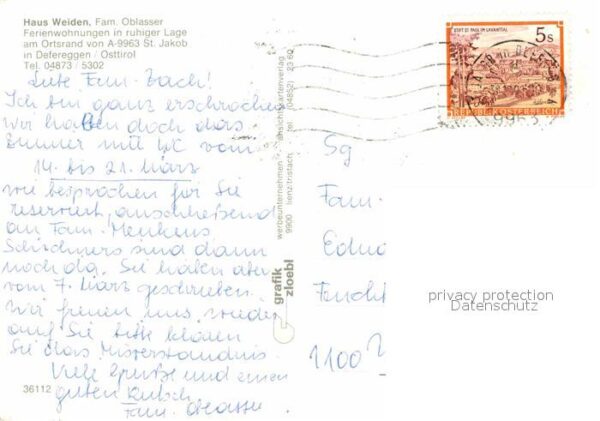 Haus Weiden, Fam. Oblasser
Ferienwohnungen in ruhiger Lage
am Ortsrand von A-9963 St. Jakob
in Defereggen / Osttirol
Tel. 04873 / 5302
Fam.
Ich bin ganz erschrocken
wir haben doch das
Zimmer mit WC vom
14. bis 21. März
wie besprochen für Sie
reserviert, anschließend
an Fam.
sind dann
noch da. Sie haben aber
vom 7. März geschrieben.
Wir freuen uns wieder
auf Sie bitte klären
Sie das Missverständnis.
Viele Grüße und einen
guten Rutsch
Fam. Oblasser
36112
werbeunternehmen - ansichtskartenverlag
9900 lienz/tristach tel. (04852) 23 60
grafik
zloebl
STIFT ST. PAUL IM LAVANTTAL
5 S
REPUBLIK ÖSTERREICH
9963
Sg
Fam.
1100
privacy protection
Datenschutz